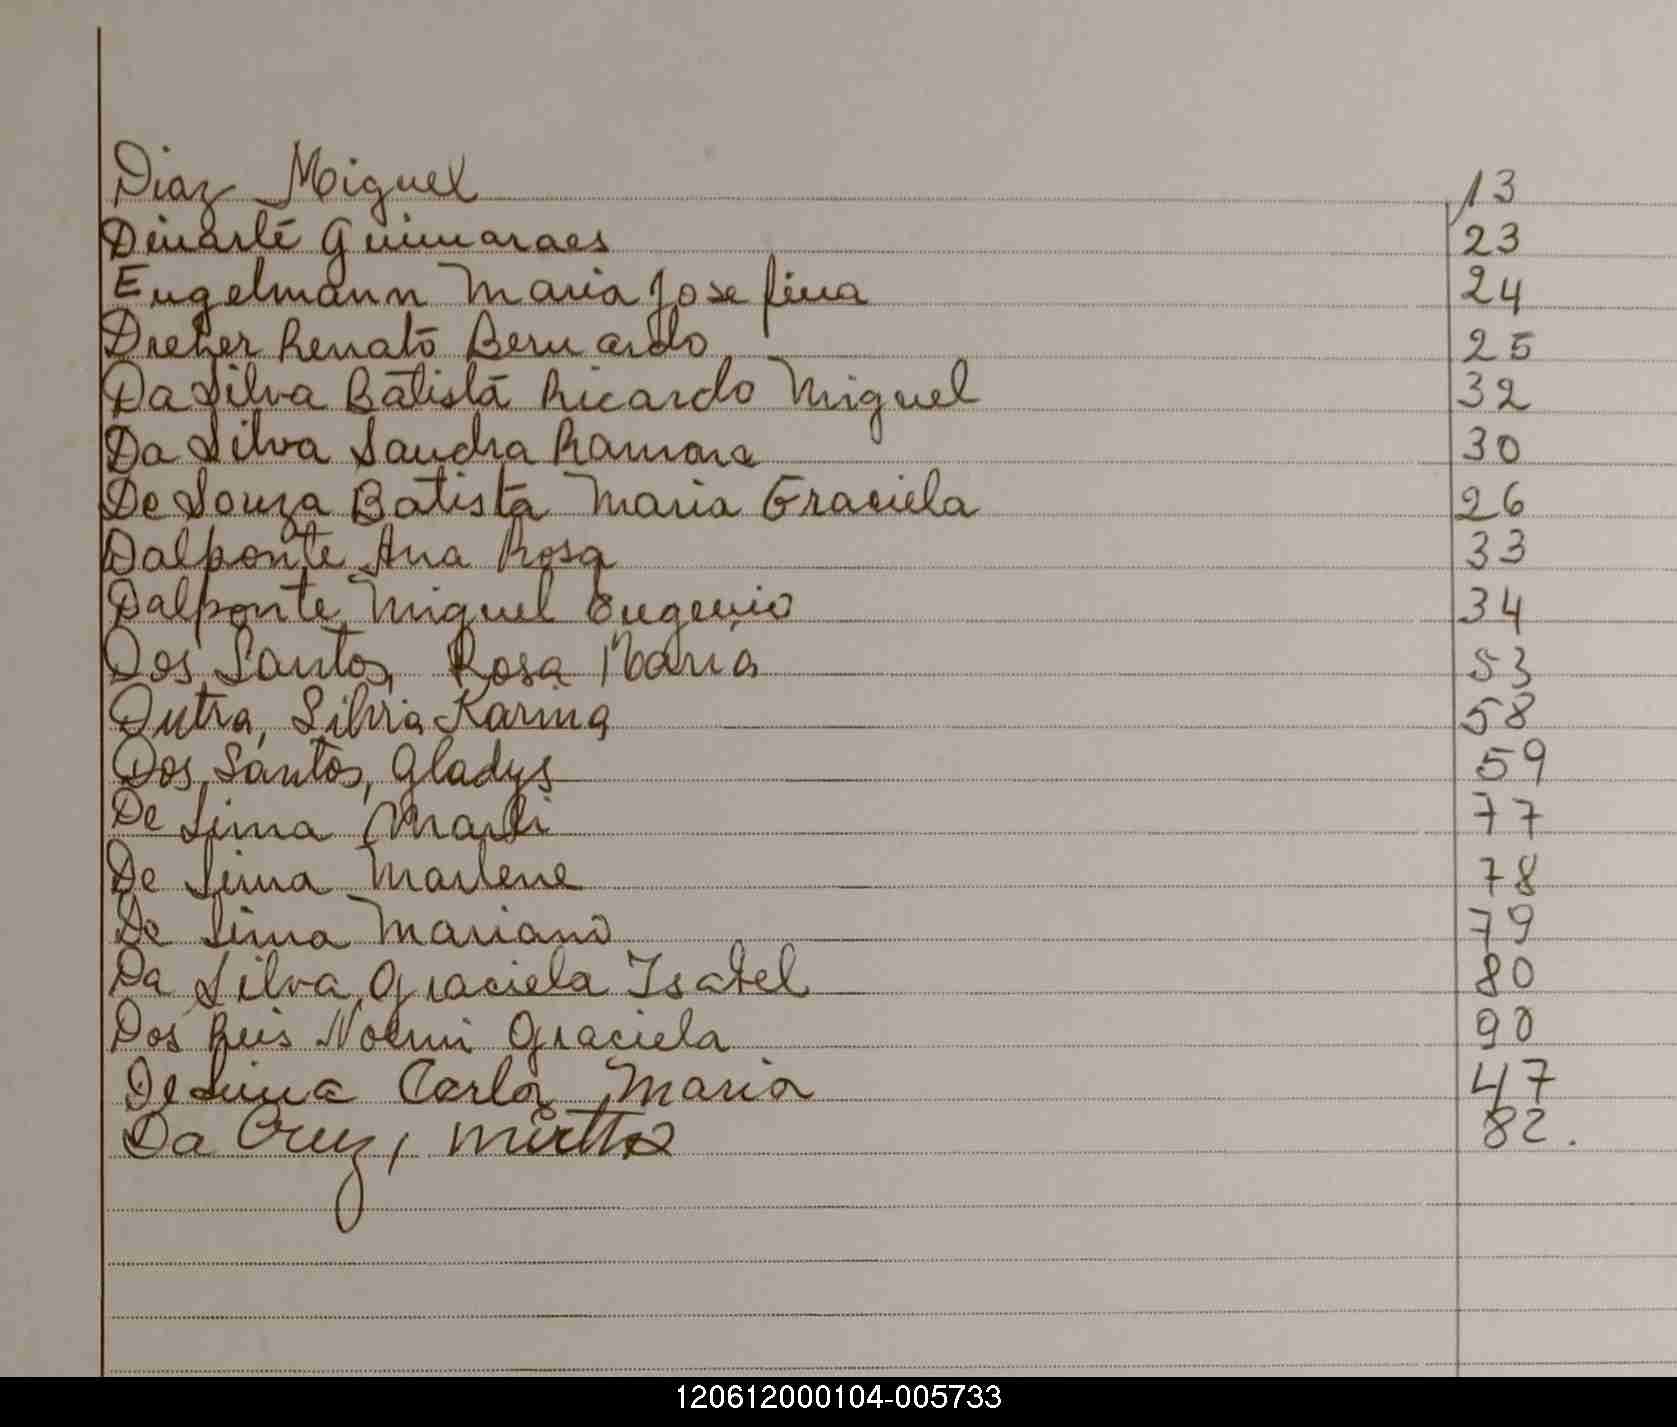 Diaz Miguel 13
Dinarte Guimaraes 23
Engelmann Maria Josefina 24
Dreher Renato Bernardo 25
Da Silva Batista Ricardo Miguel 32
Da Silva Sandra Ramona 30
De Souza Batista Maria Graciela 26
Dalponte Ana Rosa 33
Dalponte Miguel Eugenio 34
Dos Santos, Rosa Maria 53
Dutra, Silvia Karina 58
Dos Santos, Gladys 59
De Lima Marli 77
De Lima Marlene 78
De Lima Mariano 79
Da Silva Graciela Isabel 80
Dos Reis Noemi Graciela 90
De Lima Carla Maria 47
Da Cruz, Mirtta 82.
120612000104-005733